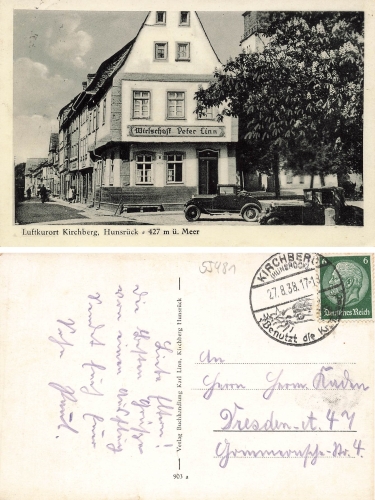 Wirtschaft Peter Linn
Luftkurort Kirchberg, Hunsrück • 427 m ü. Meer
55481
KIRCHBERG
(HUNSRÜCK)
27.8.38.17-1
Benutzt die
6 6
Deutsches Reich
Verlag Buchhandlung Karl Linn, Kirchberg Hunsrück
903 a
die besten Grüße
von einem Ausflug
An
Herrn Herm. Kaden
Dresden-A. 47
Gommernsche-Str. 4.